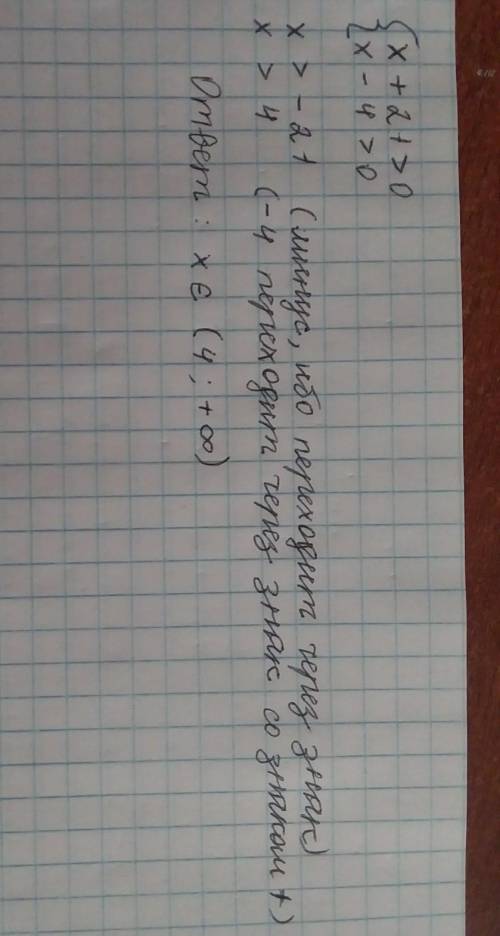 { x + 21 > 0
{ x - 4 > 0
x > - 21 (минус, ибо переходит через знак)
x > 4 (-4 переходит через знак со знаком +)
Ответ: x ∈ (4; +∞)